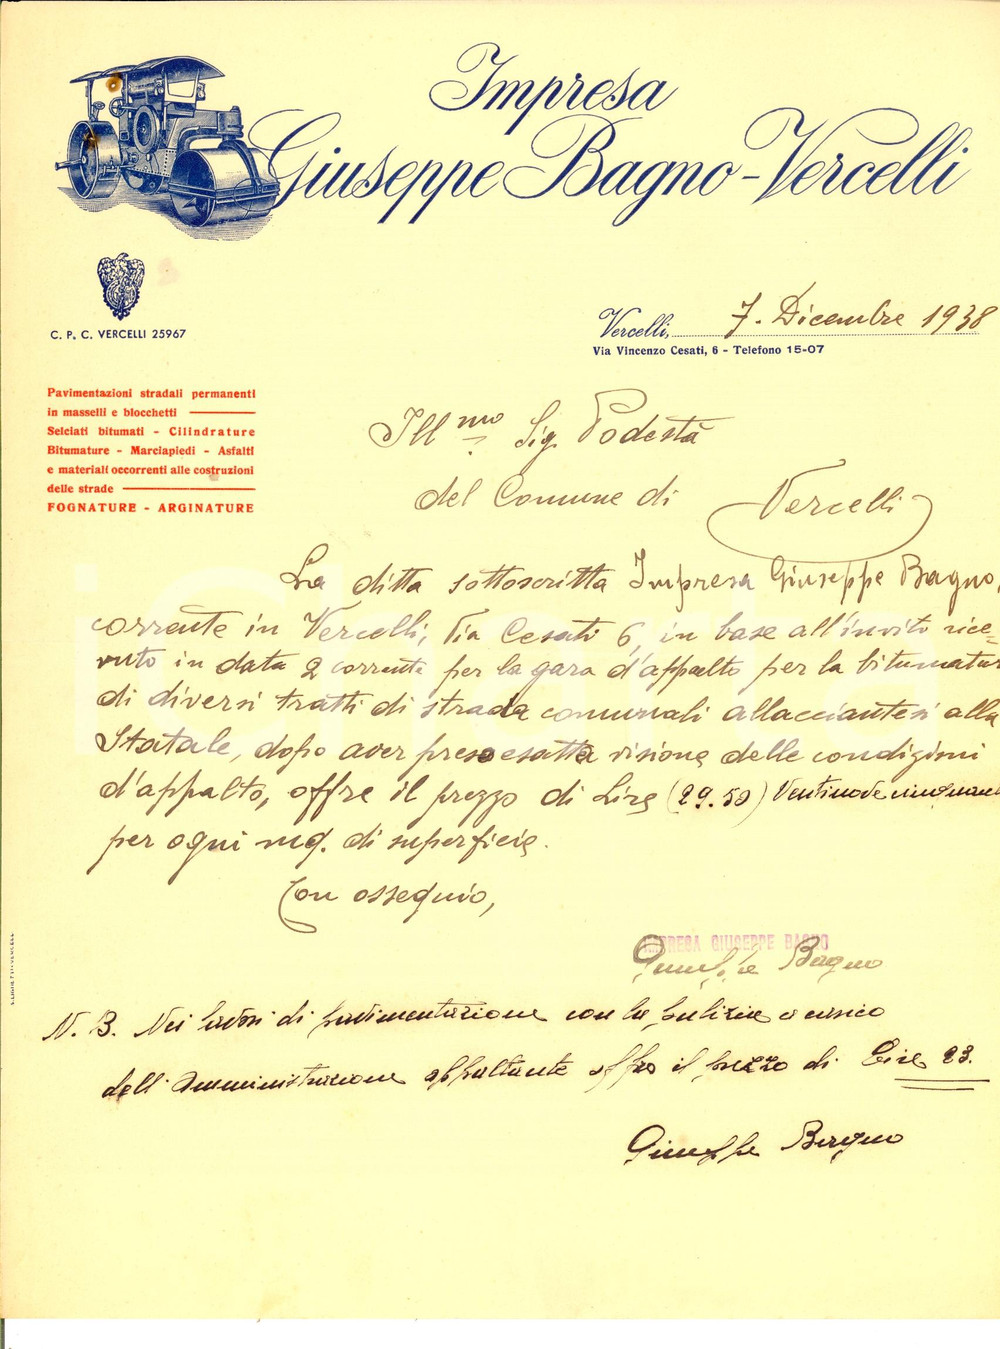 Impresa
Giuseppe Bagno - Vercelli
C. P. C. VERCELLI 25967
Vercelli, 7. Dicembre 1938
Via Vincenzo Cesati, 6 - Telefono 15-07
Pavimentazioni stradali permanenti
in masselli e blocchetti
Selciati bitumati - Cilindrature
Bitumature - Marciapiedi - Asfalti
e materiali occorrenti alle costruzioni
delle strade
FOGNATURE - ARGINATURE
Ill mo Sig. Podestà
del Comune di Vercelli
La ditta sottoscritta Impresa Giuseppe Bagno,
corrente in Vercelli, Via Cesati 6, in base all'invito rice=
vuto in data 2 corrente per la gara d'appalto per la bitumatur
di diversi tratti di strada comunali allacciantesi alla
Statale, dopo aver preso esatta visione delle condizioni
d'appalto, offre il prezzo di Lire (29.50) Ventinove
per ogni mq. di superficie.
Con ossequio,
IMPRESA GIUSEPPE BAGNO
Giuseppe Bagno
N. B. Nei lavori di pavimentazione con la pulizia a carico
dell' Amministrazione appaltante offro il prezzo di Lire 23.
Giuseppe Bagno